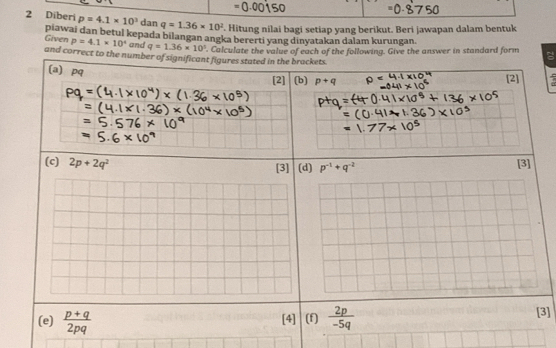 =0.00150
=0.8750
2 Diberi p = 4.1 × 10³ dan q = 1.36 × 10². Hitung nilai bagi setiap yang berikut. Beri jawapan dalam bentuk
piawai dan betul kepada bilangan angka bererti yang dinyatakan dalam kurungan.
Given p = 4.1 × 10⁴ and q = 1.36 × 10⁵. Calculate the value of each of the following. Give the answer in standard form
and correct to the number of significant figures stated in the brackets.
(a) pq [2]
pq = (4.1×10⁴) × (1.36 × 10⁵)
= (4.1×1.36) × (10⁴ × 10⁵)
= 5.576 × 10⁹
= 5.6 × 10⁹
(b) p + q [2]
p = 4.1×10⁴
=0.41 × 10⁵
p+q = 0.41×10⁵ + 1.36 × 10⁵
= (0.41+1.36) × 10⁵
= 1.77 × 10⁵
(c) 2p + 2q² [3]
(d) p⁻¹ + q⁻² [3]
(e) p + q / 2pq [4]
(f) 2p / -5q [3]